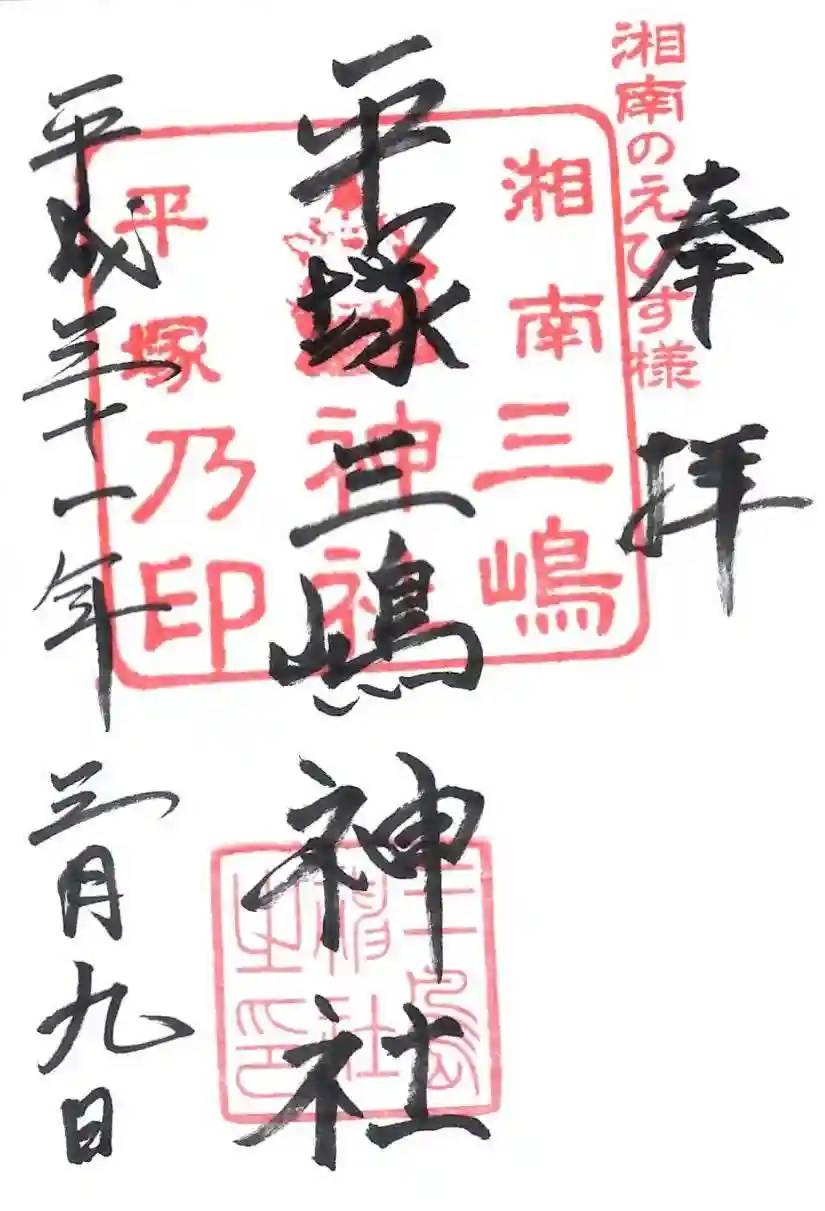 湘南のえびす様
奉拝
湘南三嶋
神社
平塚乃印
平塚三嶋神社
三島
神社
之印
平成三十一年三月九日